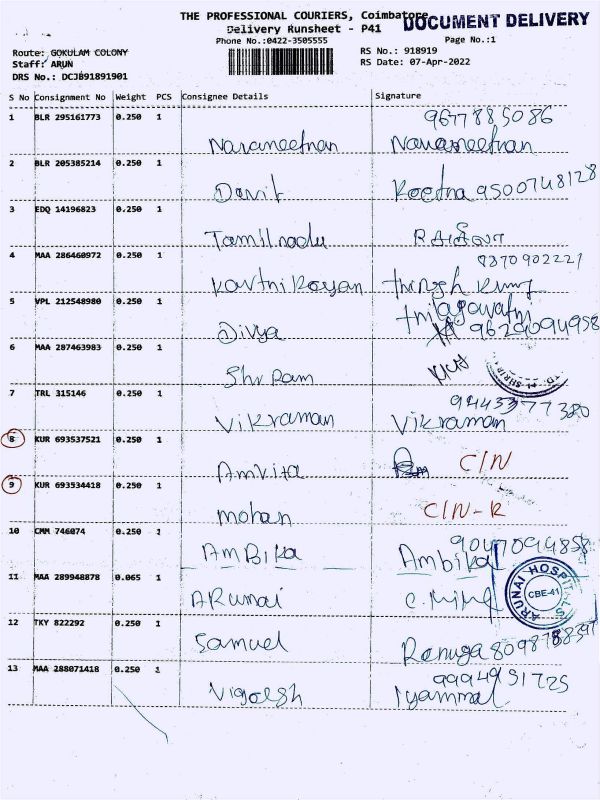 THE PROFESSIONAL COURIERS, Coimbatore
DOCUMENT DELIVERY
Delivery Runsheet - P41
Phone No.:0422-3505555
Page No.:1
Route: GOKULAM COLONY
Staff: ARUN
DRS No.: DCJB91891901
RS No.: 918919
RS Date: 07-Apr-2022
S No Consignment No Weight PCS Consignee Details Signature
1 BLR 295161773 0.250 1 9677885086
Navaneethan Navaneethan
2 BLR 205385214 0.250 1
Davit Keetna 9500748128
3 EDQ 14196823 0.250 1
Tamilnadu
4 MAA 286460972 0.250 1 8870902221
Karthikeyan
5 VPL 212548980 0.250 1 thilagavathi
Divya 9629094958
6 MAA 287463983 0.250 1
Shri Ram
7 TRL 315146 0.250 1 9443377380
Vikraman Vikraman
8 KUR 693537521 0.250 1
Amrita C/N
9 KUR 693534418 0.250 1
mohan C/N-R
10 CMM 746074 0.250 1 9047094858
AMBIKA Ambika
11 MAA 289948878 0.065 1
ARunai
ARUNAI HOSPITALS
CBE-41
12 TKY 822292 0.250 1
Samuel Renuga 8098788397
13 MAA 288071418 0.250 1 9994951725
Vignesh Iyammal